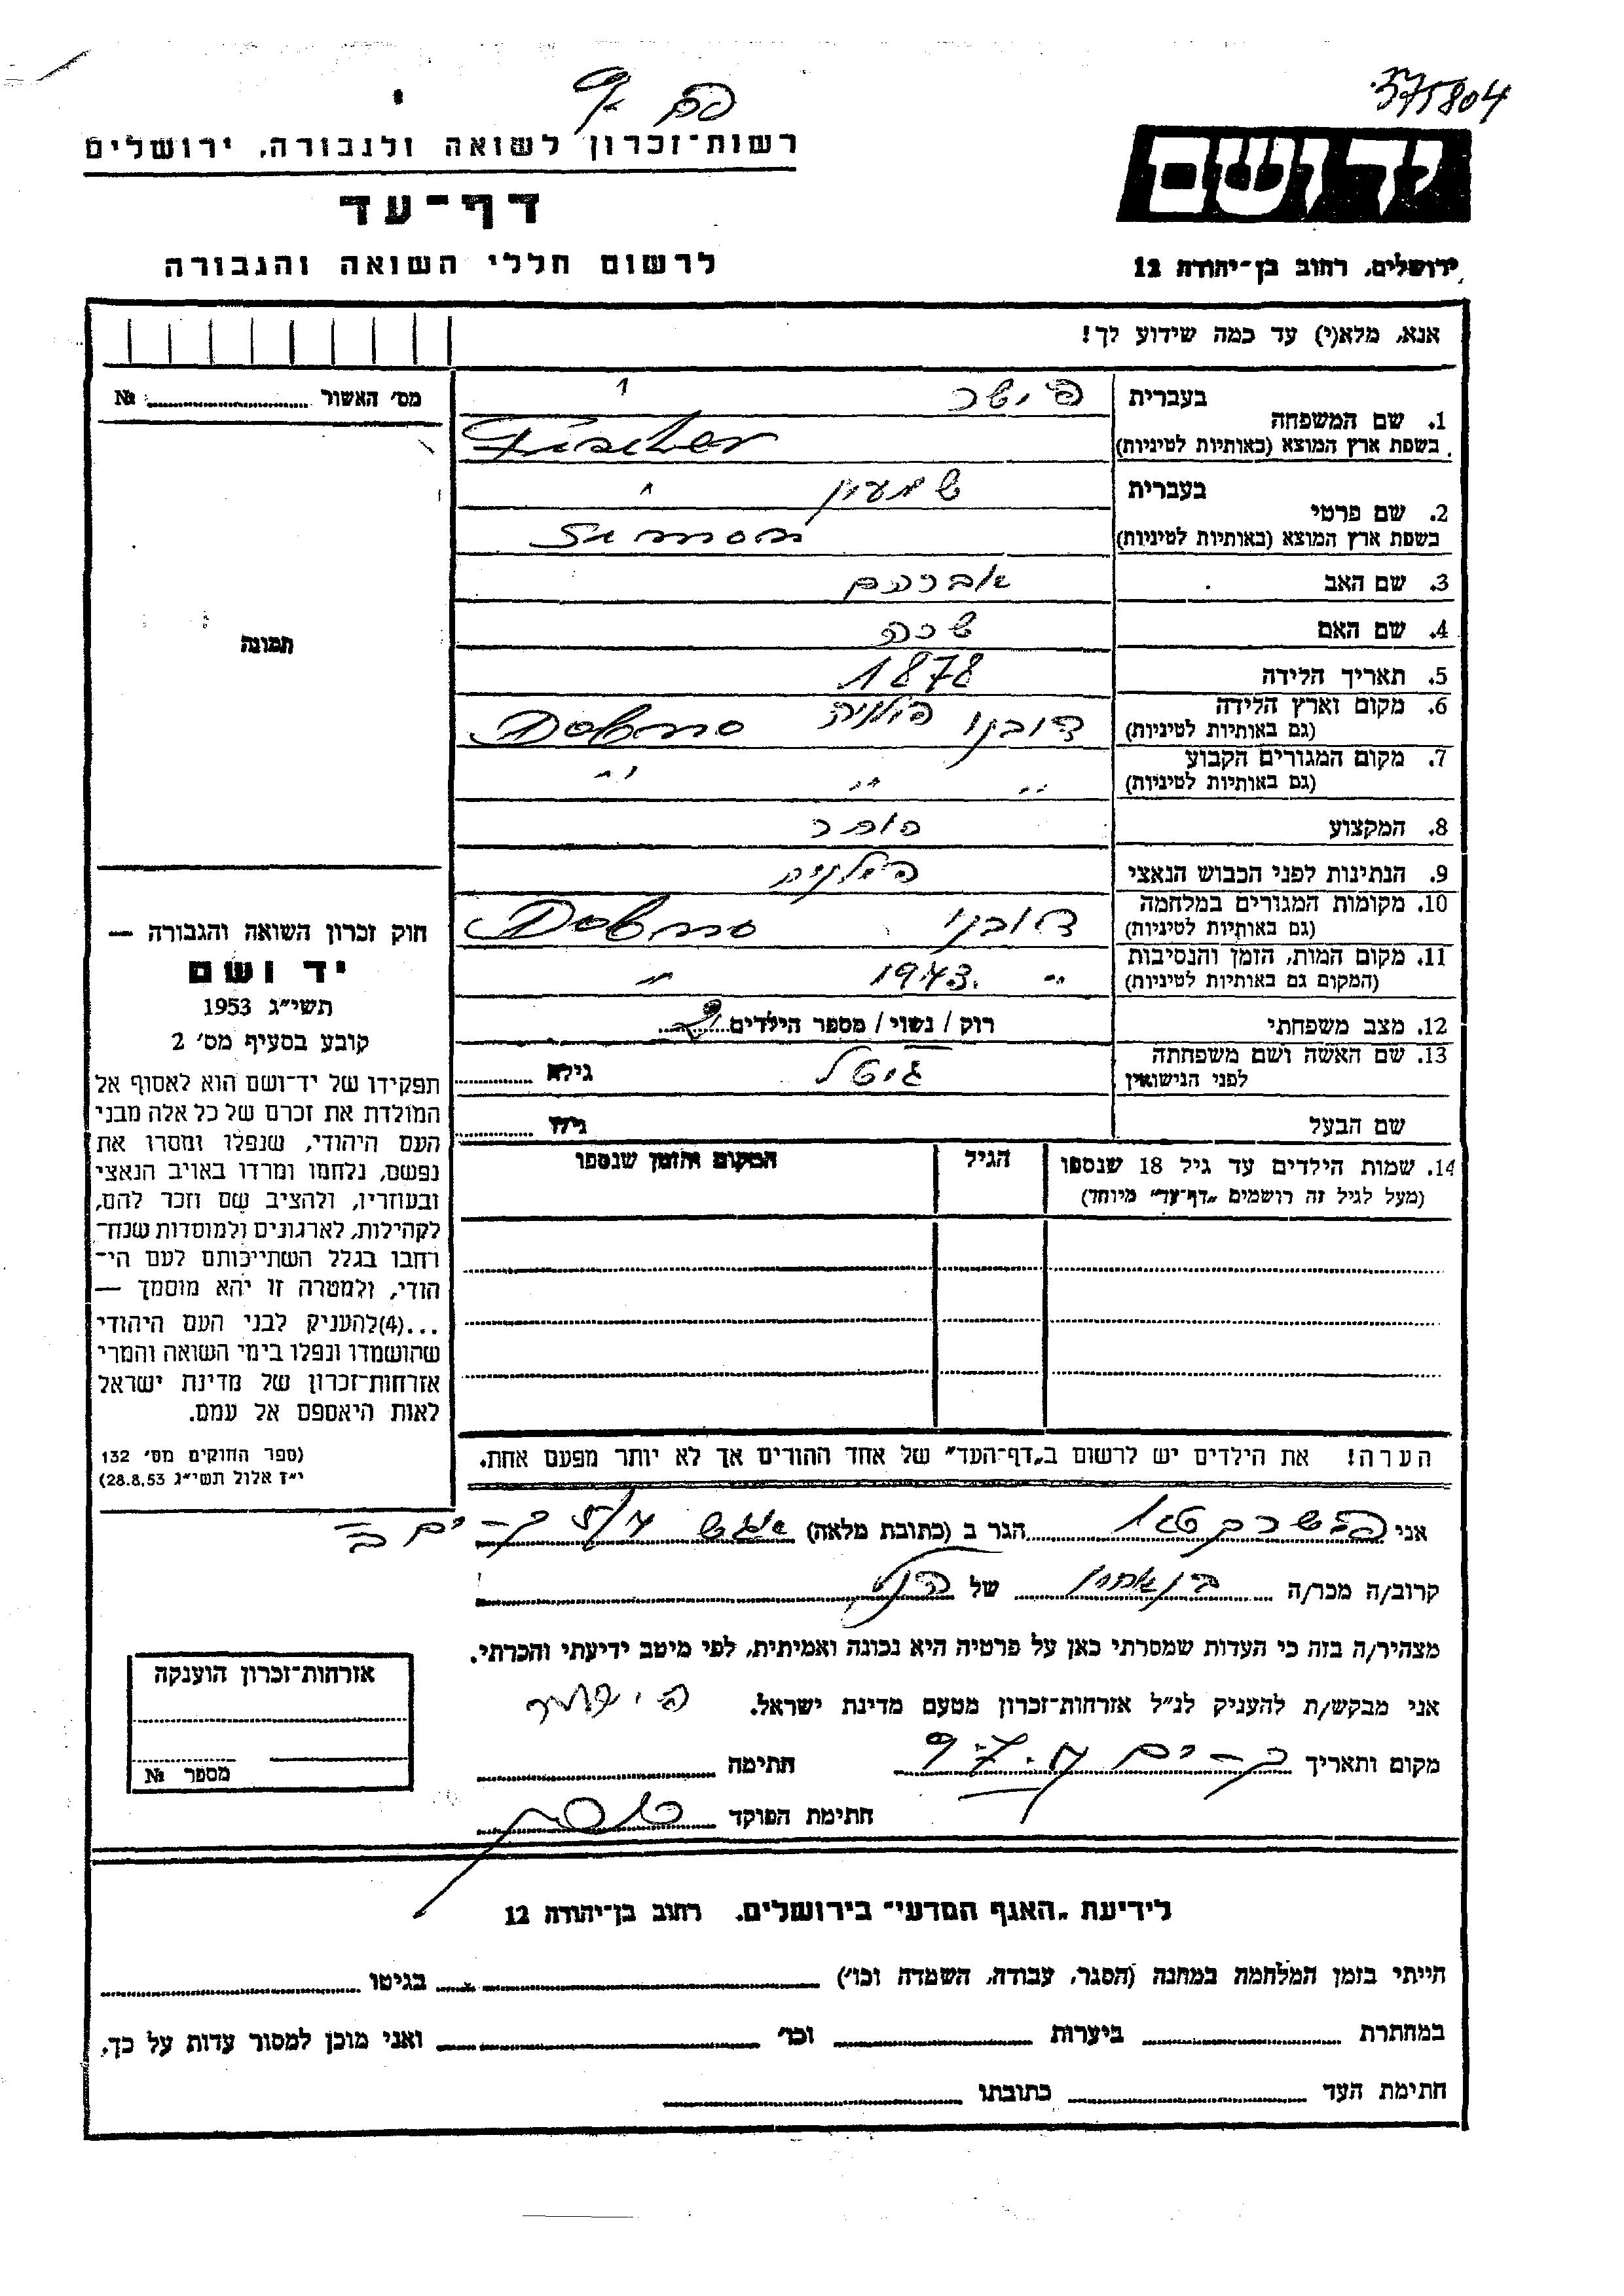 375804
רשות־זכרון לשואה ולגבורה, ירושלים
יד ושם
דף־עד
לרשום חללי השואה והגבורה
ירושלים, רחוב בן־יהודה 12
אנא, מלא(י) עד כמה שידוע לך!
מס׳ האשור №
1. שם המשפחה
בעברית פישר
בשפת ארץ המוצא (באותיות לטיניות) Fischer
2. שם פרטי
בעברית שמעון
בשפת ארץ המוצא (באותיות לטיניות) Simon
3. שם האב אברהם
4. שם האם שרה
תמונה
5. תאריך הלידה 1878
6. מקום וארץ הלידה
(גם באותיות לטיניות) דובנו פולניה Dobno
7. מקום המגורים הקבוע
(גם באותיות לטיניות) " " "
8. המקצוע סוחר
9. הנתינות לפני הכבוש הנאצי פולנית
10. מקומות המגורים במלחמה
(גם באותיות לטיניות) דובנו Dobno
11. מקום המות, הזמן והנסיבות
(המקום גם באותיות לטיניות) " 1943. "
12. מצב משפחתי רוק / נשוי / מספר הילדים 2
13. שם האשה ושם משפחתה
לפני הנישואין גיטל גילה
שם הבעל גילו
14. שמות הילדים עד גיל 18 שנספו הגיל המקום והזמן שנספו
(מעל לגיל זה רושמים „דף־עד" מיוחד)
הערה! את הילדים יש לרשום ב„דף־העד" של אחד ההורים אך לא יותר מפעם אחת.
חוק זכרון השואה והגבורה —
יד ושם
תשי״ג 1953
קובע בסעיף מס׳ 2
תפקידו של יד־ושם הוא לאסוף אל
המולדת את זכרם של כל אלה מבני
העם היהודי, שנפלו ומסרו את
נפשם, נלחמו ומרדו באויב הנאצי
ובעוזריו, ולהציב שם וזכר להם,
לקהילות, לארגונים ולמוסדות שנח־
רחבו בגלל השתייכותם לעם הי־
הודי, ולמטרה זו יהא מוסמך —
...(4)להעניק לבני העם היהודי
שהושמדו ונפלו בימי השואה והמרי
אזרחות־זכרון של מדינת ישראל
לאות היאספם אל עמם.
(ספר החוקים מס׳ 132
י״ז אלול תשי״ג 28.8.53)
אני הגר ב (כתובת מלאה)
קרוב/ה מכר/ה בן אחיו של הנ״ל
מצהיר/ה בזה כי העדות שמסרתי כאן על פרטיה היא נכונה ואמיתית, לפי מיטב ידיעתי והכרתי.
אני מבקש/ת להעניק לנ״ל אזרחות־זכרון מטעם מדינת ישראל.
מקום ותאריך חתימה
חתימת הפוקד
אזרחות־זכרון הוענקה
מספר №
לידיעת „האגף המדעי" בירושלים, רחוב בן־יהודה 12
הייתי בזמן המלחמה במחנה (הסגר, עבודה, השמדה וכו׳) בגיטו
במחתרת ביערות וכו׳ ואני מוכן למסור עדות על כך,
חתימת העד כתובתו